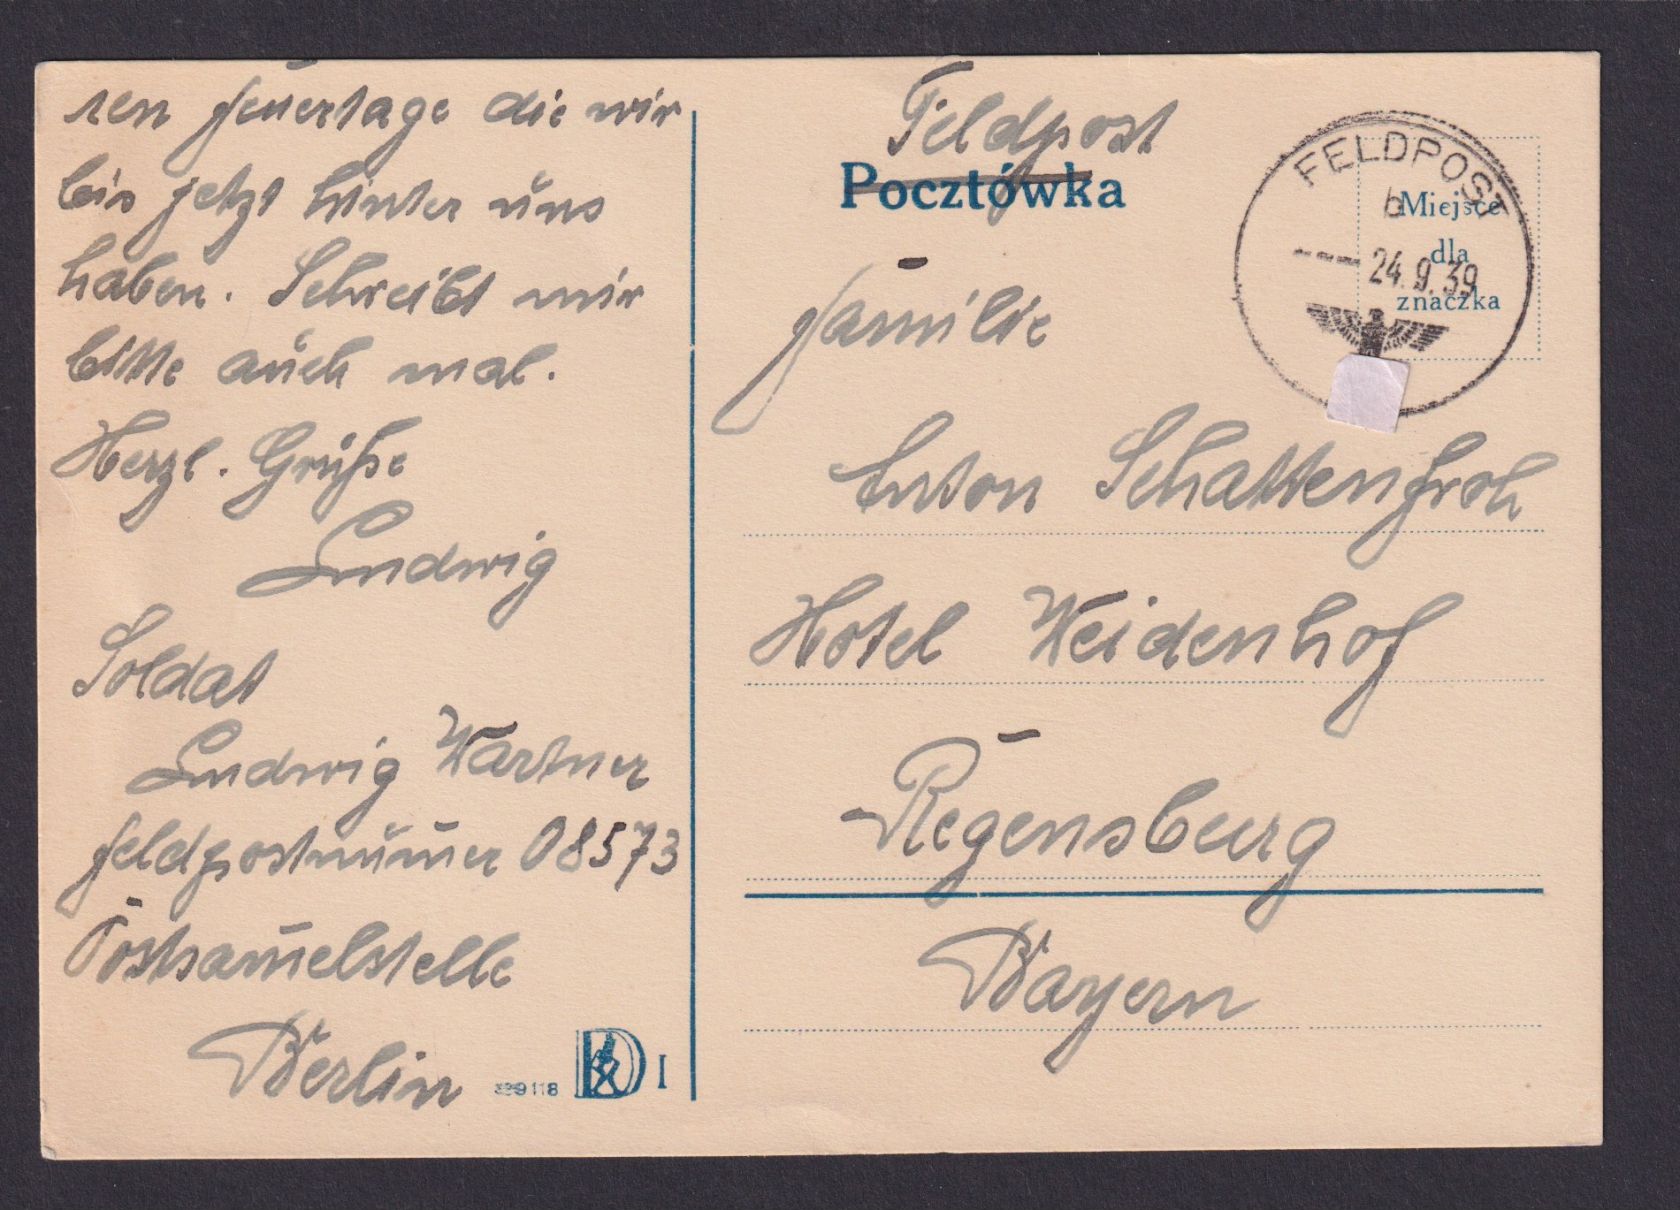 ren Feuertage die wir
bis jetzt hinter uns
haben. Schreibt mir
bitte auch mal.
Herzl. Grüße
Ludwig
Soldat
Ludwig Wartner
Feldpostnum̄er 08573
Postsam̄elstelle
Berlin
118
I
Feldpost
Pocztówka
FELDPOST
b
24.9.39
Miejsce
dla
znaczka
Familie
Anton Schattenfroh
Hotel Weidenhof
Regensburg
Bayern